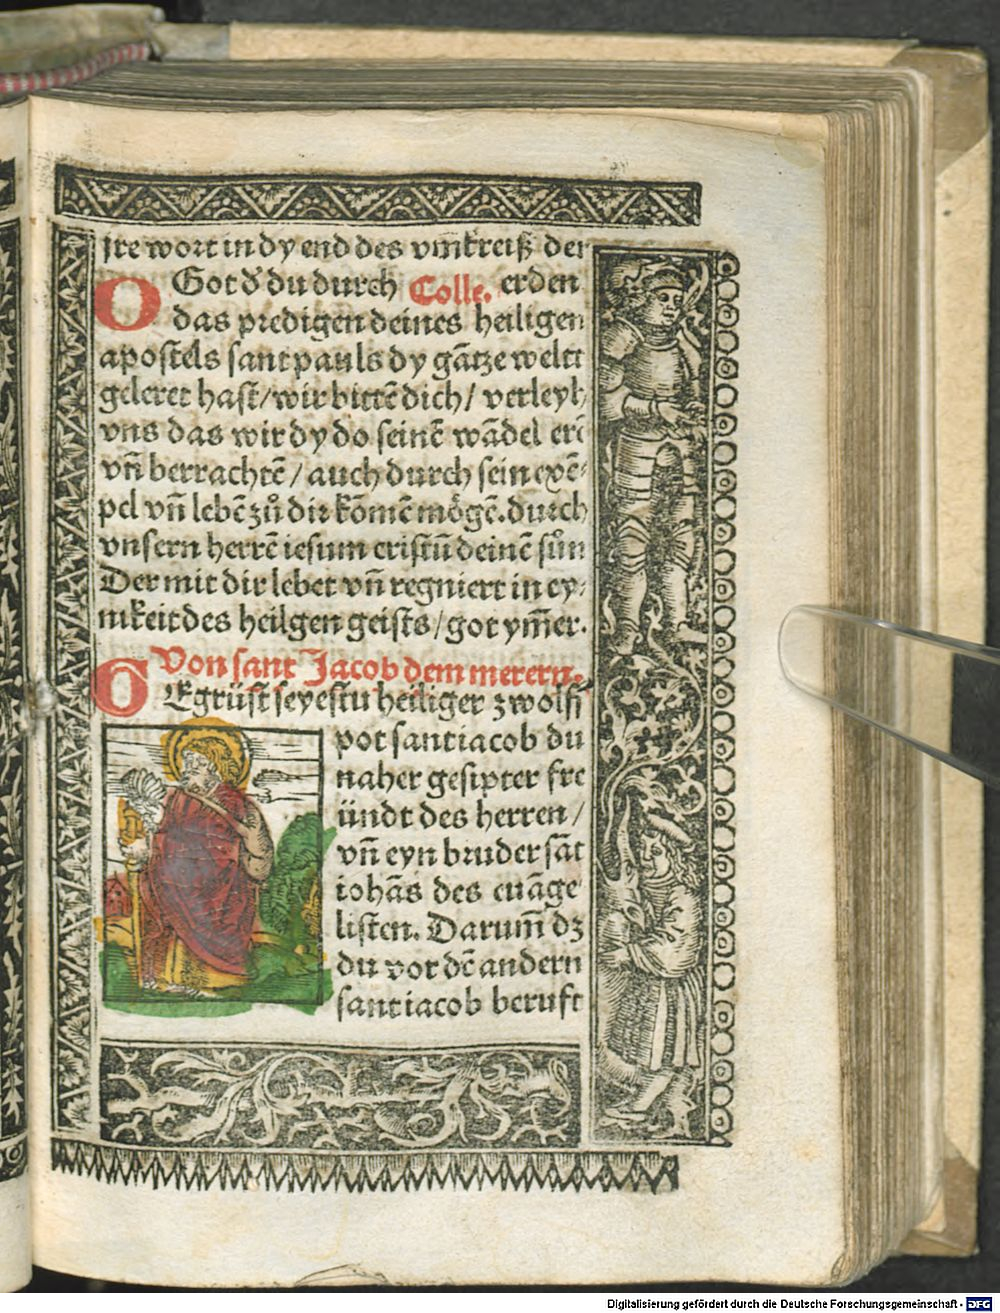 jre wort in dy end des vm̄kreiß der
O Got d̕ du durch Colle. erden
das predigen deines heiligen
apostels sant pauls dy gātze weltt
geleret hast/wir bittē dich/ verleyh
vns das wir dy do seinē wādel erē
vn̄ betrachtē/auch durch sein exē⸗
pel vn̄ lebē zů dir kōmē mögē.durch
vnsern herrē iesum cristū deinē sůn
Der mit dir lebet vn̄ regniert in ey⸗
nikeit des heilgen geists/got ym̄er.
Von sant Jacob dem merern.
O Egrüst seyestu heiliger zwolff
pot sant iacob du
naher gesipter fre
ündt des herren/
vn̄ eyn bruder sāt
iohās des euāge
listen. Darum̄ dz
du vor dē andern
sant iacob beruft
Digitalisierung gefördert durch die Deutsche Forschungsgemeinschaft - DFG